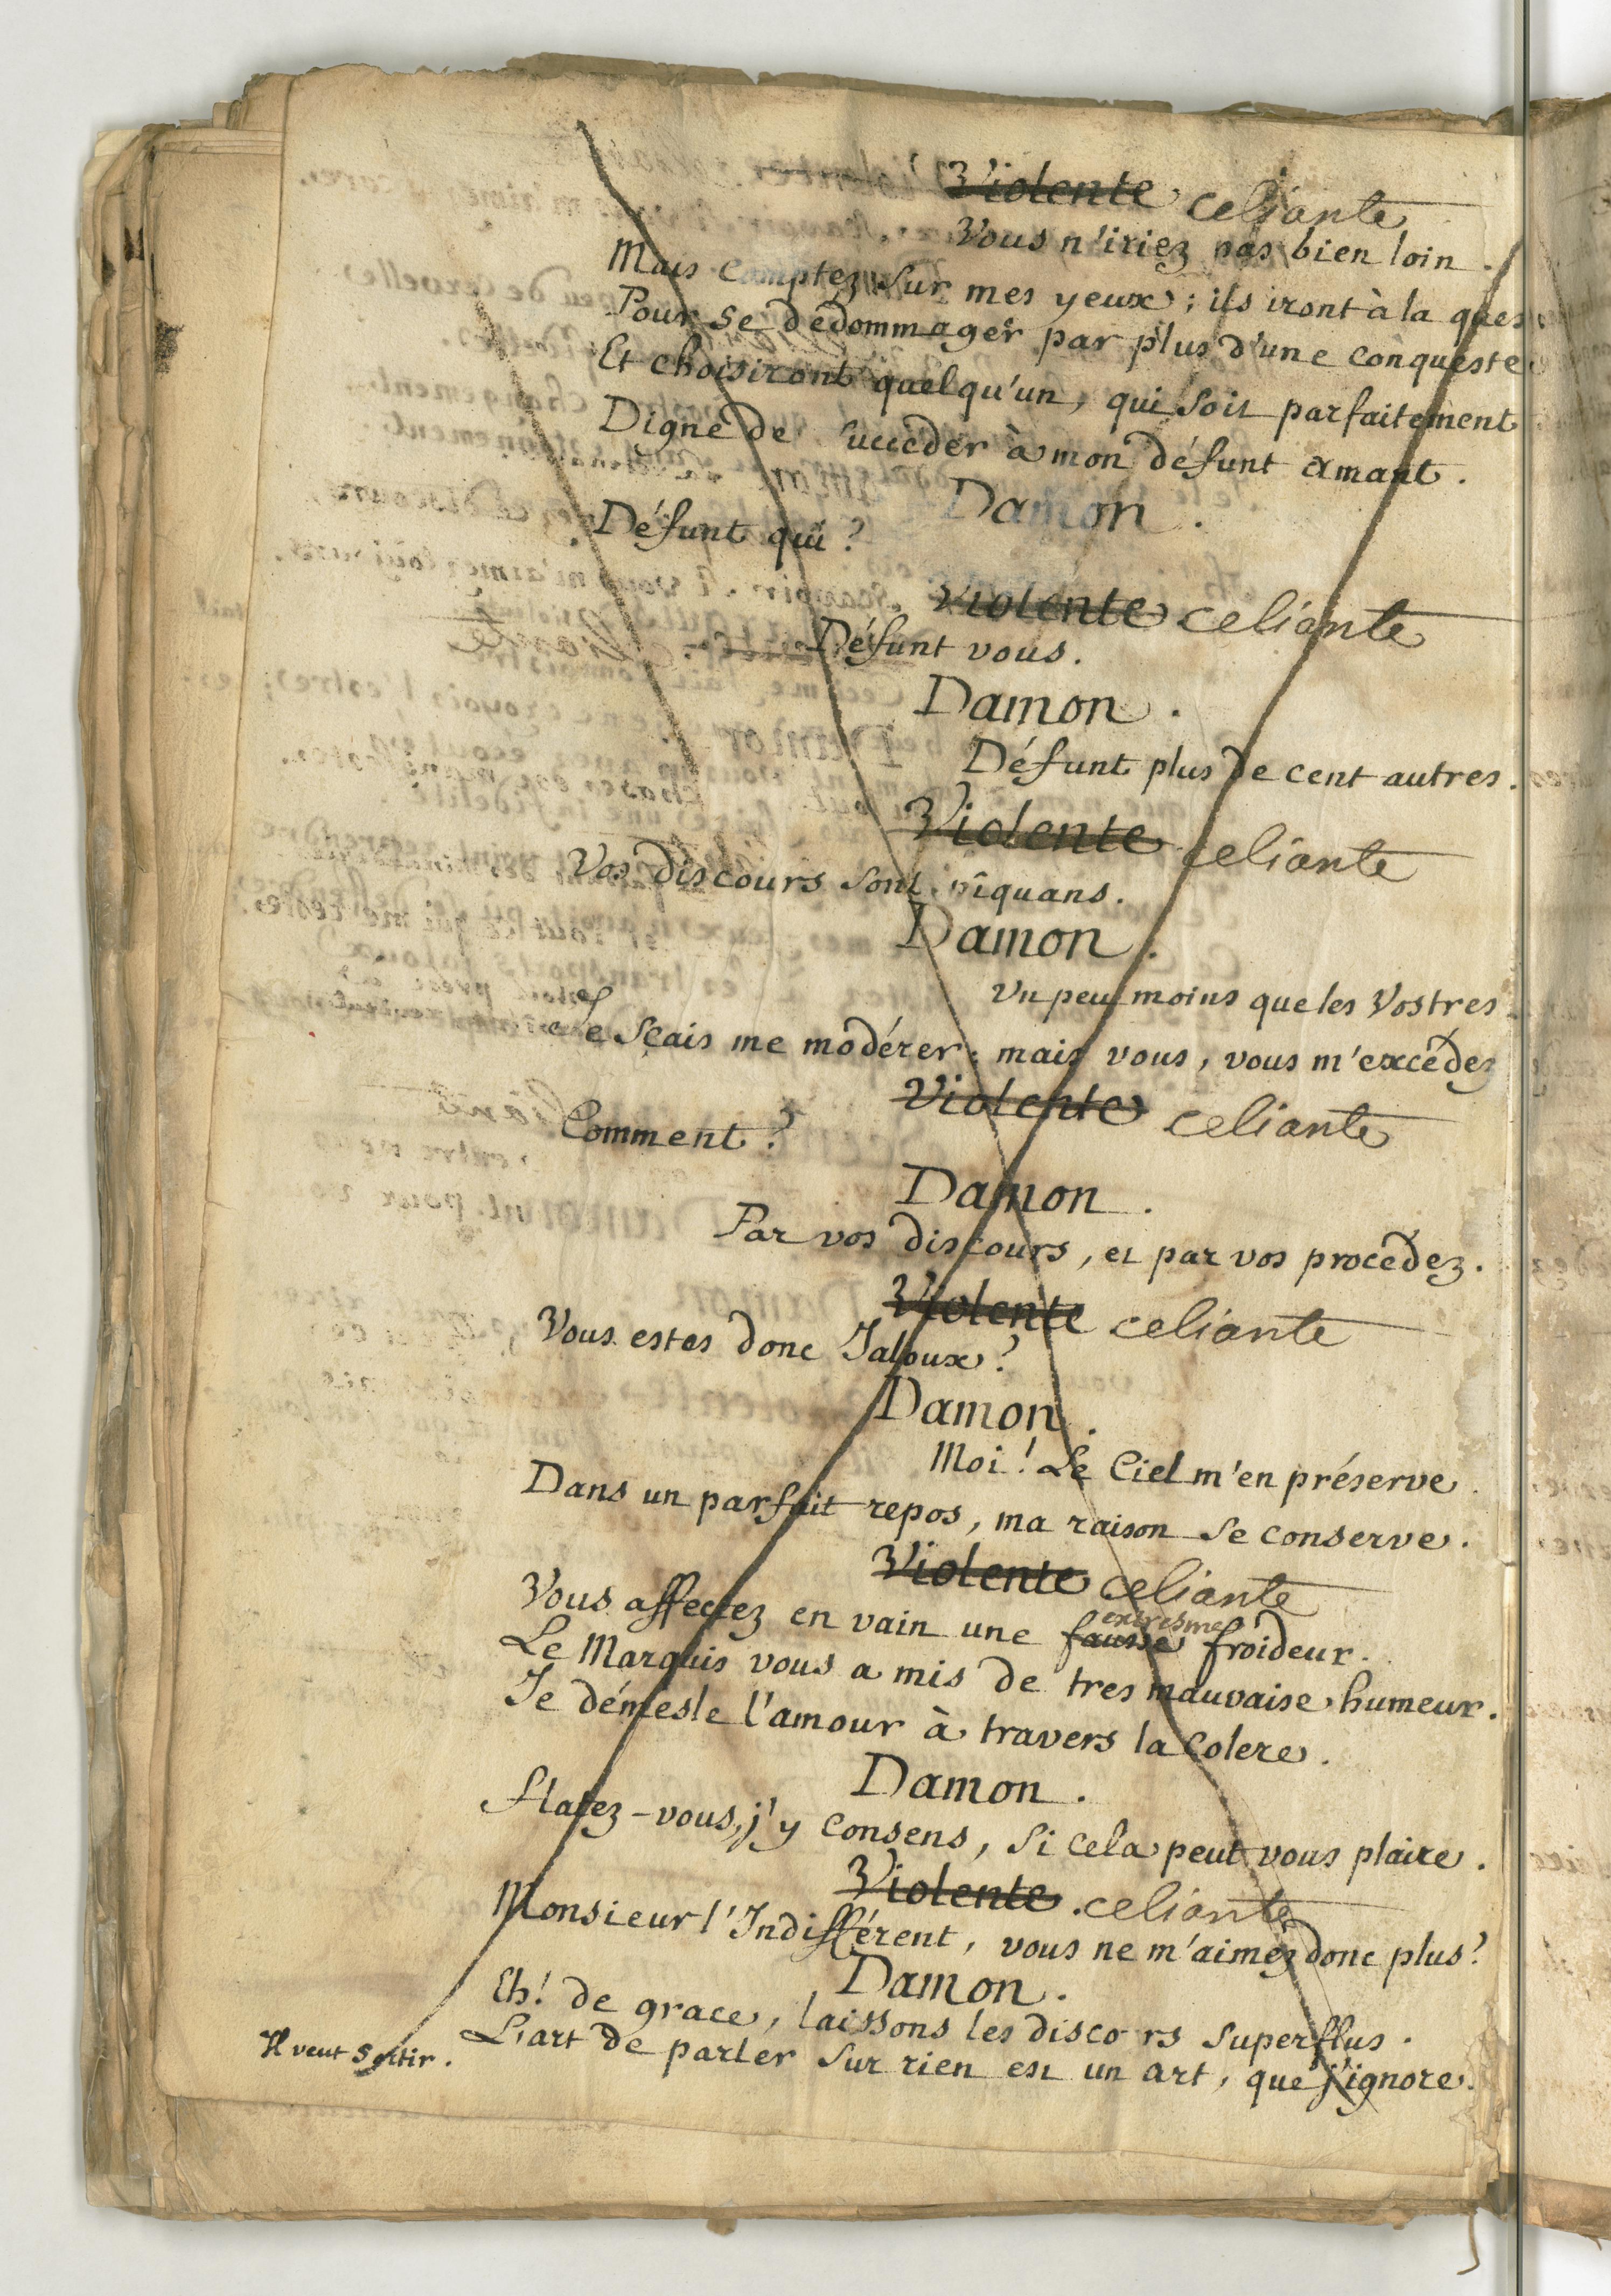 Violente celiante
Vous n'iriez pas bien loin.
Mais comptez sur mes yeux; ils iront à la ques
Pour se dédommager par plus d'une conqueste
Et choisiront quelqu'un, qui soit parfaitement
Digne de succéder à mon défunt amant.
Damon.
Défunt qui?
Violente celiante
Défunt vous.
Damon.
Défunt plus de cent autres.
Violente celiante
Vos discours sont piquans.
Damon.
Un peu moins que les Vostres
Je sçais me modérer; mais vous, vous m'excédez
Violente celiante
Comment?
Damon.
Par vos discours, et par vos procédez.
Violente celiante
Vous estes donc Jaloux?
Damon.
Moi! Le Ciel m'en préserve.
Dans un parfait repos, ma raison se conserve.
Violente celiante
extresme
Vous affectez en vain une fausse froideur.
Le Marquis vous a mis de tres mauvaise humeur.
Je démesle l'amour à travers la Colere.
Damon.
Flatez-vous, j'y consens, si cela peut vous plaire.
Violente. celiante
Monsieur l'Indifférent, vous ne m'aimez donc plus?
Damon.
Eh! de grace, laissons les discors superflus.
L'art de parler sur rien est un art, que j'ignore.
Il veut sortir.